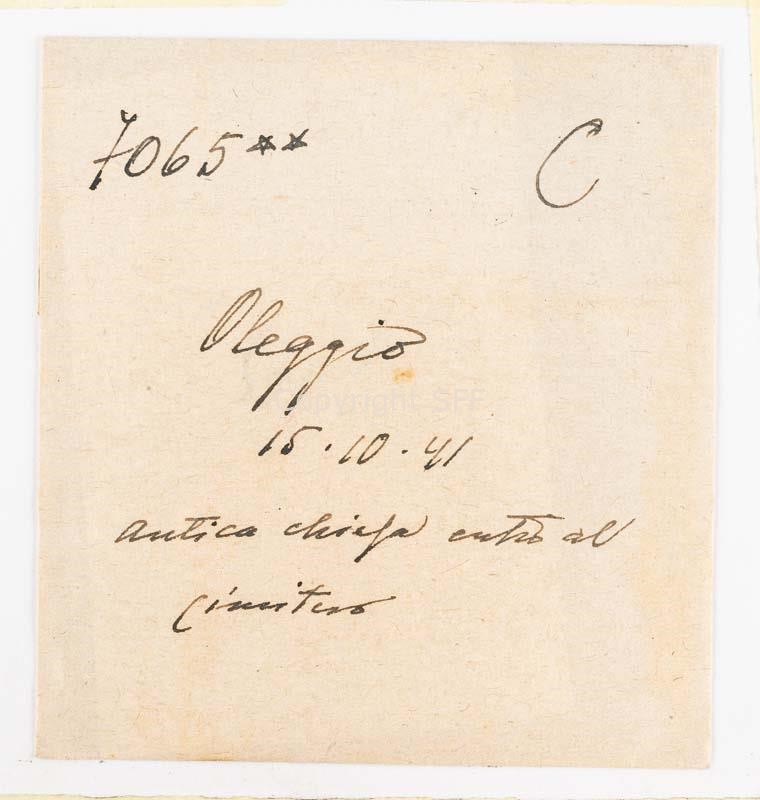 7065** C
Oleggio
Copyright SPF
15·10·41
antica chiesa entro al
cimitero